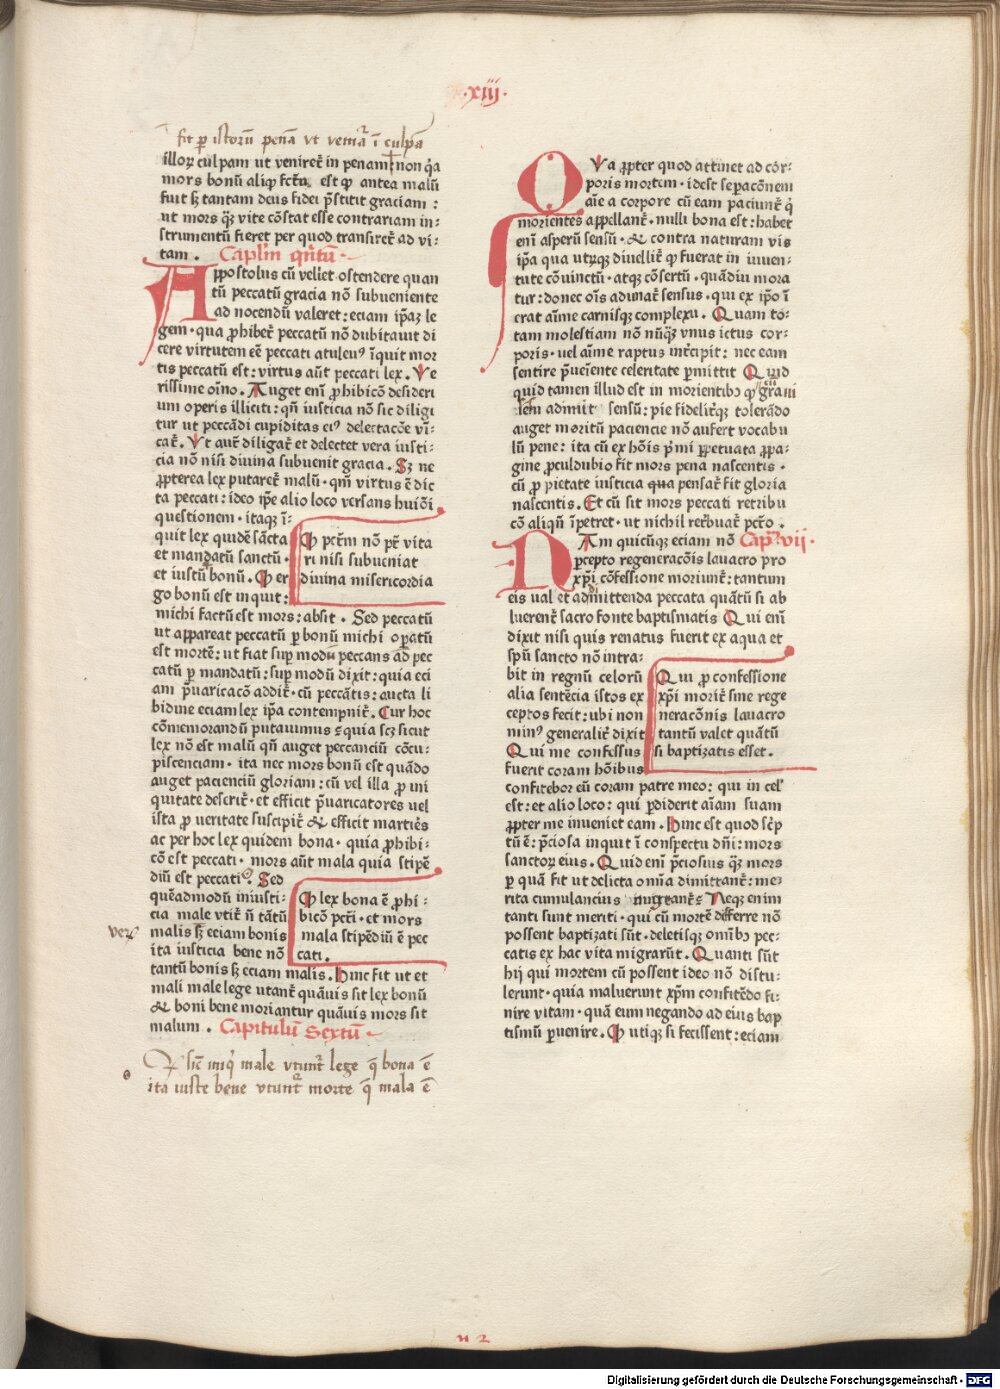 ·xiij·
fit ꝑ istorū penā vt veniat̄ ī culpā
illoꝝ culpam ut veniret̄ in penam non q̄a
mors bonū aliqͥ fctū est qͥ antea malū
fuit sꝫ tantam deus fidei p̄stitit graciam :
ut mors q̄ꝫ vite cōstat esse contrariam in-
strumentū fieret per quod transiret̄ ad vi-
tam . Caplm̄ qn̄tū ·
Appostolus cū vellet ostendere quan
tū peccatū gracia nō subueniente
ad nocendū valeret : eciam ip̄aꝫ le
gem · qua ꝓhibet̄ peccatū nō dubitauit di
cere virtutem eē peccati atuleꝰ īquit mor
tis peccatū est : virtus aūt peccati lex . Ve
rissime oīno . Auget enī ꝓhibicō desideri
um operis illiciti : qn̄ iusticia nō sic diligi
tur ut peccādi cupiditas eiꝰ delectacōe vī-
cat̄ . Vt aut̄ diligat̄ et delectet vera iusti-
cia nō nisi diuina subuenit gracia . Sꝫ ne
ꝓpterea lex putaret̄ malū · qm̄ virtus ē dic
ta peccati : ideo ip̄e alio loco versans huiōi
questionem · itaqꝫ ī-
quit lex quidē sācta
et mandatū sanctū ·
et iustū bonū . Qͩ er
go bonū est inquit :
Qͩ pctm̄ nō pt̄ vita
ri nisi subueniat
diuina misericordia
michi factū est mors : absit . Sed peccatū
ut appareat peccatū ꝑ bonū michi oꝑatū
est mortē : ut fiat suꝑ modū peccans ad pec
catū ꝑ mandatū : suꝑ modū dixit : quia eci
am p̄uaricacō addit̄ · cū peccātis : aucta li
bidine eciam lex ip̄a contempnit̄ . Cur hoc
cōmemorandū putauimus : quia scꝫ sicut
lex nō est malū qn̄ auget peccanciū cōcu-
piscenciam · ita nec mors bonū est quādo
auget pacienciū gloriam : cū vel illa ꝓ ini
quitate deserit̄ · et efficit p̄uaricatores uel
ista ꝓ ueritate suscipit̄ & efficit martires
ac per hoc lex quidem bona · quia ꝓhibi-
cō est peccati · mors aūt mala quia stipē
diū est peccati . Sed
quēadmodū iniusti-
cia male vtit̄ n̄ tātū
malis sꝫ eciam bonis
ita iusticia bene nō
Qͩ lex bona ē ꝓhi-
bicō pcti · et mors
mala stipēdiū ē pec
cati .
tantū bonis sꝫ eciam malis . Hinc fit ut et
mali male lege utant̄ quāuis sit lex bonū
& boni bene moriantur quāuis mors sit
malum . Capitulū Sextū
sic iniqͥ male vtunt̄ lege q̄ bona ē
ita iuste bene vtunt̄ morte q̄ mala ē
Qua ꝓpter quod attinet ad cor-
poris mortem · idest seꝑacōnem
aīe a corpore cū eam paciunt̄ qͥ
morientes appellant̄ · nulli bona est : habet
enī asperū sensū · & contra naturam vis
ip̄a qua utrqꝫ diuellit̄ qͩ fuerat in iuuen-
tute cōuinctū · atqꝫ cōsertū · quādiu mora
tur : donec oīs adimat̄ sensus · qui ex ip̄o ī
erat aīme carnisqꝫ complexu . Quam to-
tam molestiam nō nūq̄ꝫ vnus ictus cor-
poris · uel aīme raptus int̄cipit : nec eam
sentire p̄ueniente celeritate ꝑmittit Quid
quid tamen illud est in morientibꝫ qͩ graui
sensū : pie fidelit̄qꝫ tolerādo
auget moritū paciencie nō aufert vocabu
lū pene : ita cū ex hoīs pͥmi ꝑpetuata ꝓpa-
gine ꝓculdubio fit mors pena nascentis ·
cū ꝓ pietate iusticia qua pensat̄ fit gloria
nascentis . Et cū sit mors peccati retribu
cō aliqn̄ īpetret · ut nichil ret̄buat̄ pctō .
Nam quicūqꝫ eciam nō Caplm̄ vij ·
ꝑcepto regeneracōis lauacro pro
xp̄i cōfessione moriunt̄ : tantum
eis ual et ad mittenda peccata quātū si ab
luerent̄ sacro fonte baptismatis Qui enī
dixit nisi quis renatus fuerit ex aqua et
spū sancto nō intra-
bit in regnū celorū
alia sentēcia istos ex
ceptos fecit : ubi non
minꝰ generalit̄ dixit
Qui me confessus
fuerit coram hōibus
Qui ꝓ confessione
xp̄i morit̄ sine rege
neracōnis lauacro
tantū valet quātū
si baptizatis esset .
confitebor eū coram patre meo : qui in cel'
est : et alio loco : qui ꝑdiderit aīam suam
ꝓpter me inueniet eam . Hinc est quod sc̄p
tū ē : p̄ciosa inquit ī conspectu dn̄i : mors
sanctoꝝ eius . Quid enī p̄ciosius q̄ꝫ mors
ꝑ quā fit ut delicta om̄ia dimittant̄ : me-
rita cumulancius migrant̄ : Neqꝫ enim
tanti sunt meriti · qui cū mortē differre nō
possent baptizati sūt · deletisqꝫ om̄ibꝫ pec-
catis ex hac vita migrarūt . Quanti sūt
hij qui mortem cū possent ideo nō distu-
lerunt · quia maluerunt xp̄m confitēdo fi-
nire vitam · quā eum negando ad eius bap
tismū ꝑuenire . Qͩ utiqꝫ si fecissent : eciam
Digitalisierung gefördert durch die Deutsche Forschungsgemeinschaft - DFG